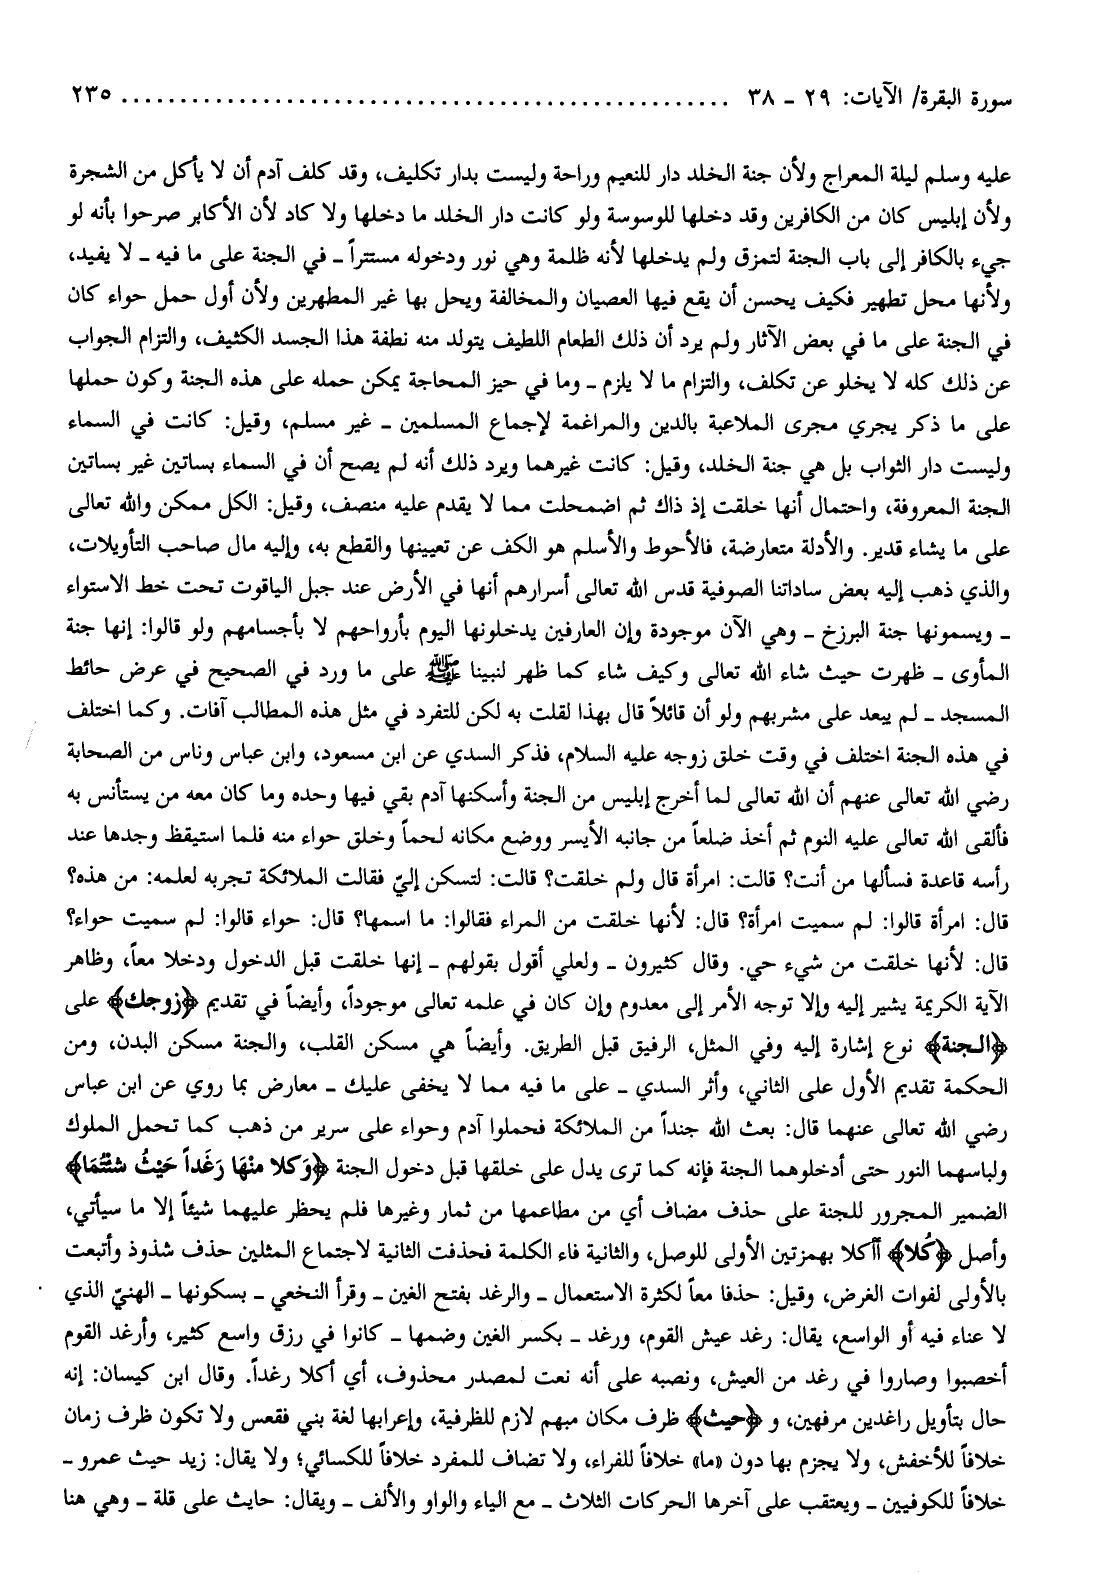 سورة البقرة/ الآيات: ٢٩ - ٣٨ ................................................... ٢٣٥
عليه وسلم ليلة المعراج ولأن جنة الخلد دار للنعيم وراحة وليست بدار تكليف، وقد كلف آدم أن لا يأكل من الشجرة
ولأن إبليس كان من الكافرين وقد دخلها للوسوسة ولو كانت دار الخلد ما دخلها ولا كاد لأن الأكابر صرحوا بأنه لو
جيء بالكافر إلى باب الجنة لتمزق ولم يدخلها لأنه ظلمة وهي نور ودخوله مستتراً ـ في الجنة على ما فيه ـ لا يفيد،
ولأنها محل تطهير فكيف يحسن أن يقع فيها العصيان والمخالفة ويحل بها غير المطهرين ولأن أول حمل حواء كان
في الجنة على ما في بعض الآثار ولم يرد أن ذلك الطعام اللطيف يتولد منه نطفة هذا الجسد الكثيف، والتزام الجواب
عن ذلك كله لا يخلو عن تكلف، والتزام ما لا يلزم ـ وما في حيز المحاجة يمكن حمله على هذه الجنة وكون حملها
على ما ذكر يجري مجرى الملاعبة بالدين والمراغمة لإجماع المسلمين ـ غير مسلم، وقيل: كانت في السماء
وليست دار الثواب بل هي جنة الخلد، وقيل: كانت غيرهما ويرد ذلك أنه لم يصح أن في السماء بساتين غير بساتين
الجنة المعروفة، واحتمال أنها خلقت إذ ذاك ثم اضمحلت مما لا يقدم عليه منصف، وقيل: الكل ممكن والله تعالى
على ما يشاء قدير. والأدلة متعارضة، فالأحوط والأسلم هو الكف عن تعيينها والقطع به، وإليه مال صاحب التأويلات،
والذي ذهب إليه بعض ساداتنا الصوفية قدس الله تعالى أسرارهم أنها في الأرض عند جبل الياقوت تحت خط الاستواء
ـ ويسمونها جنة البرزخ ـ وهي الآن موجودة وإن العارفين يدخلونها اليوم بأرواحهم لا بأجسامهم ولو قالوا: إنها جنة
المأوى ـ ظهرت حيث شاء الله تعالى وكيف شاء كما ظهر لنبينا ﷺ على ما ورد في الصحيح في عرض حائط
المسجد ـ لم يبعد على مشربهم ولو أن قائلاً قال بهذا لقلت به لكن للتفرد في مثل هذه المطالب آفات. وكما اختلف
في هذه الجنة اختلف في وقت خلق زوجه عليه السلام، فذكر السدي عن ابن مسعود، وابن عباس وناس من الصحابة
رضي الله تعالى عنهم أن الله تعالى لما أخرج إبليس من الجنة وأسكنها آدم بقي فيها وحده وما كان معه من يستأنس به
فألقى الله تعالى عليه النوم ثم أخذ ضلعاً من جانبه الأيسر ووضع مكانه لحماً وخلق حواء منه فلما استيقظ وجدها عند
رأسه قاعدة فسألها من أنت؟ قالت: امرأة قال ولم خلقت؟ قالت: لتسكن إليّ فقالت الملائكة تجربه لعلمه: من هذه؟
قال: امرأة قالوا: لم سميت امرأة؟ قال: لأنها خلقت من المراء فقالوا: ما اسمها؟ قال: حواء قالوا: لم سميت حواء؟
قال: لأنها خلقت من شيء حي. وقال كثيرون ـ ولعلي أقول بقولهم ـ إنها خلقت قبل الدخول ودخلا معاً، وظاهر
الآية الكريمة يشير إليه وإلا توجه الأمر إلى معدوم وإن كان في علمه تعالى موجوداً، وأيضاً في تقديم ﴿زوجك﴾ على
﴿الجنة﴾ نوع إشارة إليه وفي المثل، الرفيق قبل الطريق. وأيضاً هي مسكن القلب، والجنة مسكن البدن، ومن
الحكمة تقديم الأول على الثاني، وأثر السدي ـ على ما فيه مما لا يخفى عليك ـ معارض بما روي عن ابن عباس
رضي الله تعالى عنهما قال: بعث الله جنداً من الملائكة فحملوا آدم وحواء على سرير من ذهب كما تحمل الملوك
ولباسهما النور حتى أدخلوهما الجنة فإنه كما ترى يدل على خلقها قبل دخول الجنة ﴿وَكلا منْهَا رَغَداً حَيْثُ شئْتُمَا﴾
الضمير المجرور للجنة على حذف مضاف أي من مطاعمها من ثمار وغيرها فلم يحظر عليهما شيئاً إلا ما سيأتي،
وأصل ﴿كُلا﴾ أأكلا بهمزتين الأولى للوصل، والثانية فاء الكلمة فحذفت الثانية لاجتماع المثلين حذف شذوذ وأتبعت
بالأولى لفوات الغرض، وقيل: حذفا معاً لكثرة الاستعمال ـ والرغد بفتح الغين ـ وقرأ النخعي ـ بسكونها ـ الهنيّ الذي
لا عناء فيه أو الواسع، يقال: رغد عيش القوم، ورغد ـ بكسر الغين وضمها ـ كانوا في رزق واسع كثير، وأرغد القوم
أخصبوا وصاروا في رغد من العيش، ونصبه على أنه نعت لمصدر محذوف، أي أكلا رغداً. وقال ابن كيسان: إنه
حال بتأويل راغدين مرفهين، و ﴿حيث﴾ ظرف مكان مبهم لازم للظرفية، وإعرابها لغة بني فقعس ولا تكون ظرف زمان
خلافاً للأخفش، ولا يجزم بها دون «ما» خلافاً للفراء، ولا تضاف للمفرد خلافاً للكسائي؛ ولا يقال: زيد حيث عمرو ـ
خلافاً للكوفيين ـ ويعتقب على آخرها الحركات الثلاث ـ مع الياء والواو والألف ـ ويقال: حايث على قلة ـ وهي هنا